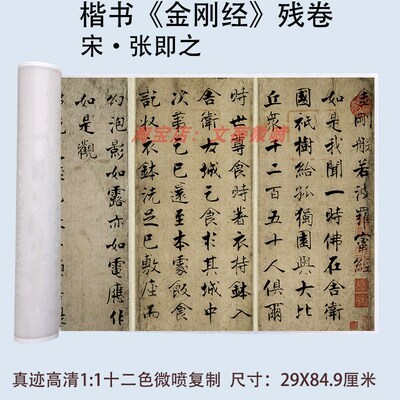 楷书《金刚经》残卷
宋·张即之
金剛般若波羅蜜經
如是我聞一時佛在舍衛
國祇樹給孤獨園與大比
丘衆千二百五十人俱爾
時世尊食時著衣持鉢入
舍衛大城乞食於其城中
次第乞已還至本處飯食
訖收衣鉢洗足已敷座而
幻泡影如露亦如電應作
如是觀
淘宝店：
真迹高清1:1十二色微喷复制 尺寸：29X84.9厘米